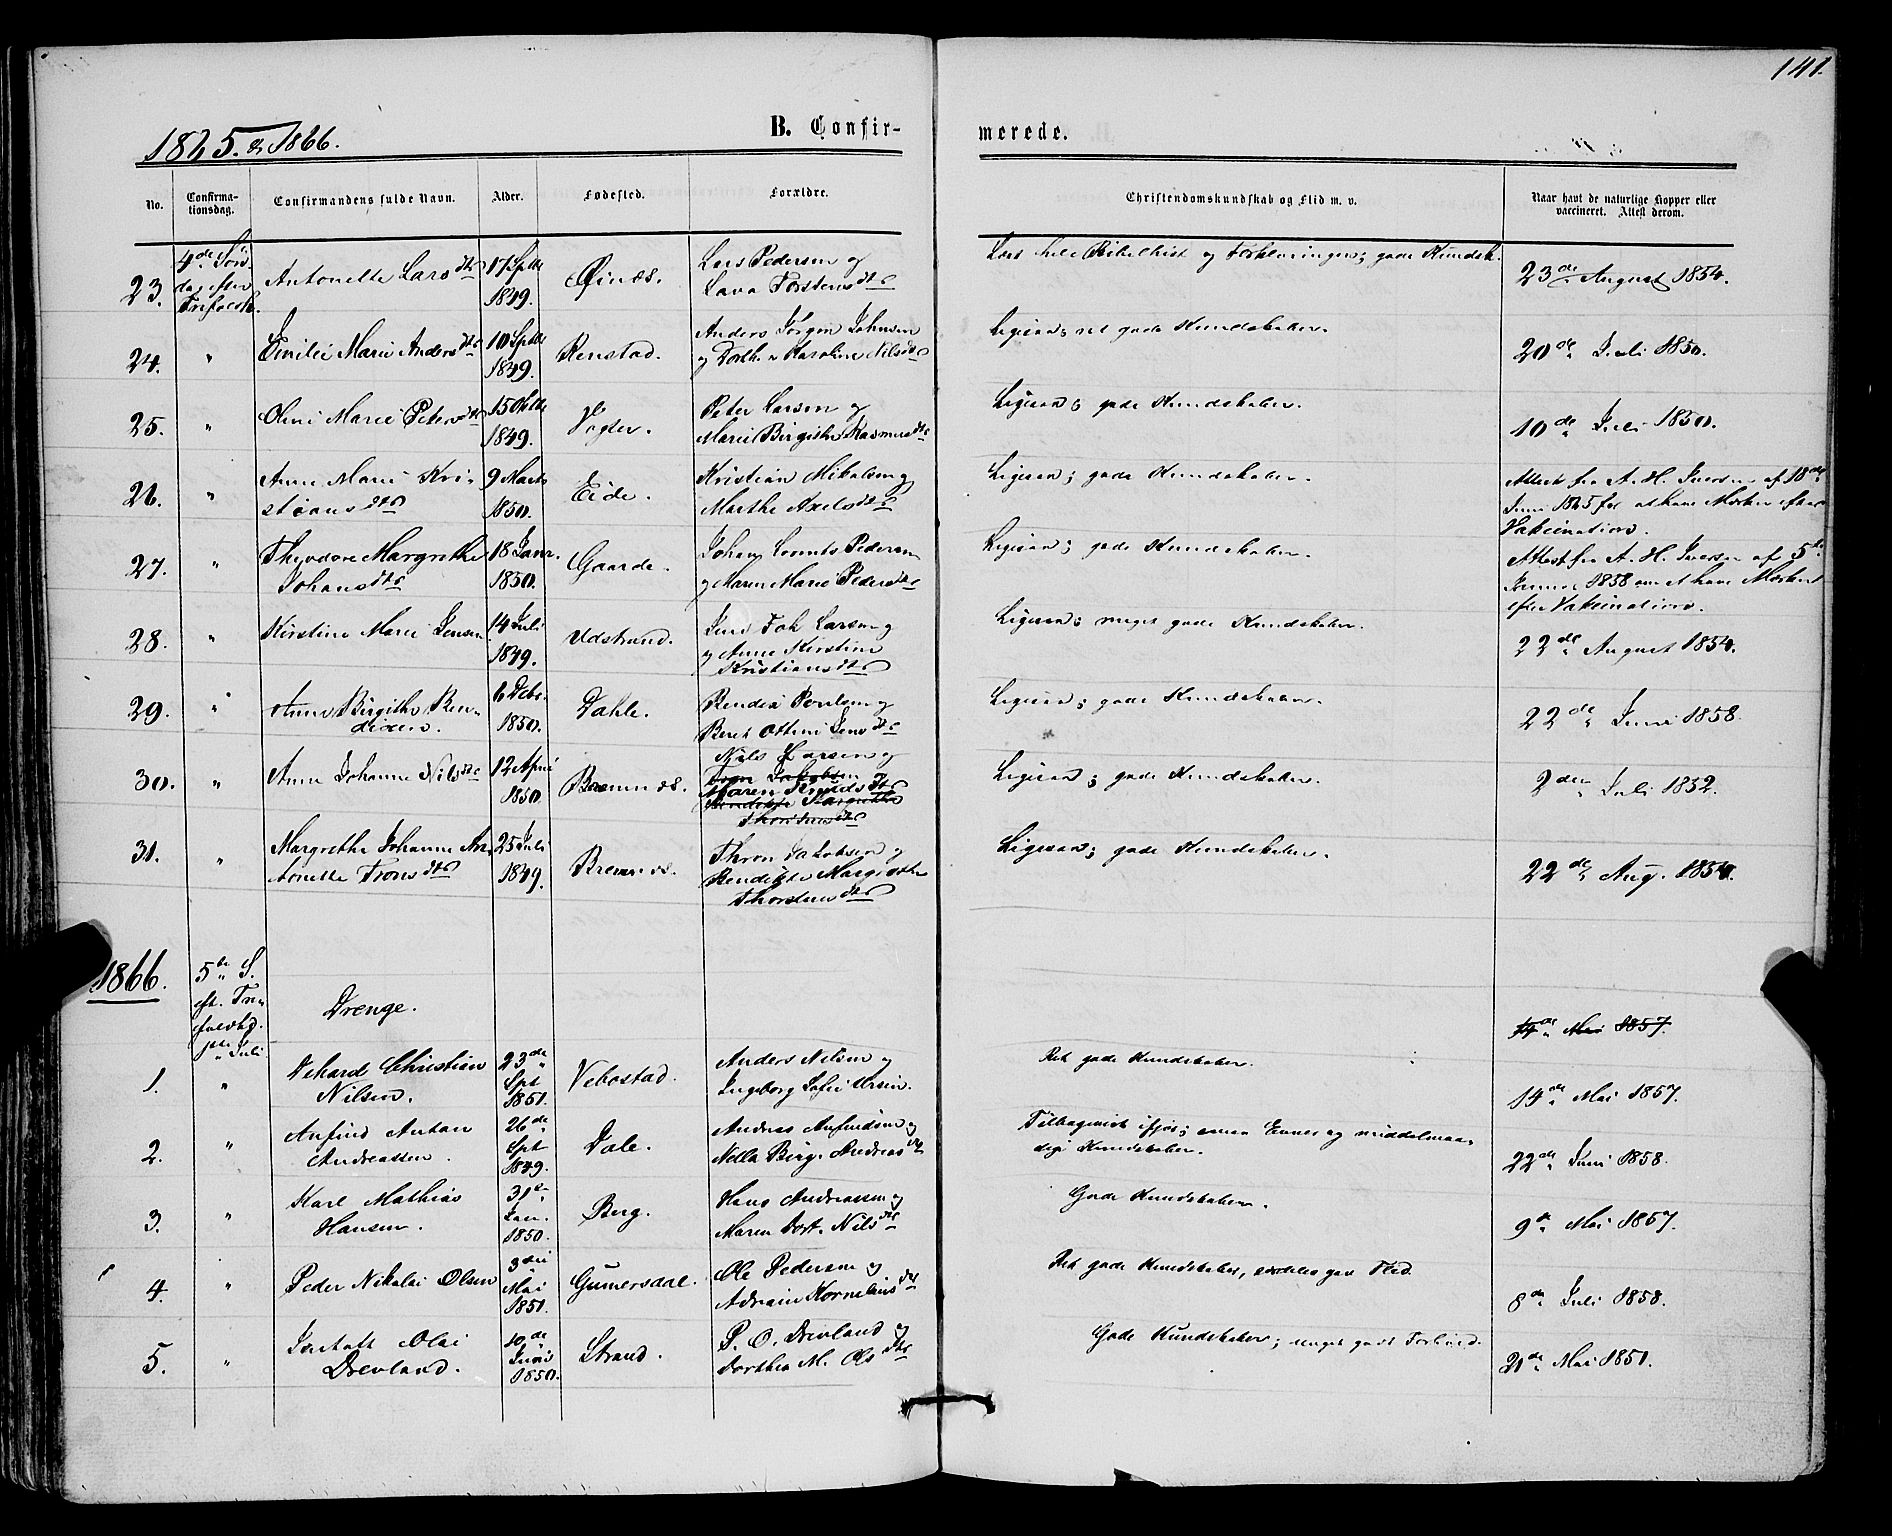 141.
1865. & 1866.
B. Confir-
merede.
No.
Confirma-
tionsdag.
Confirmandens fulde Navn.
Alder.
Fødested.
Forældre.
Christendomskundskab og Flid m. v.
Naar havt de naturlige Kopper eller
vaccineret. Attest derom.
23.
4de Søn-
dag efter
Trefoldh.
Antonette Larsdtr
17 Sptbr
1849.
Øinæs.
Lars Pedersen og
Lava Torstensdtr
Læst hele Bibelhist og Forklaringen; gode Kundsk.
23de August 1854.
24.
"
Emilie Marie Andersdtr
10 Sptbr
1849.
Renstad.
Anders Jørgen Johnsen
og Dorthea Karoline Nilsdtr
Ligesaa; ret gode Kundskaber.
20de Juli 1850.
25.
"
Oline Marie Petersdtr
15 Oktbr
1849.
Vogter.
Peter Larsen og
Marie Birgithe Rasmusdtr
Ligesaa; gode Kundskaber.
10de Juli 1850.
26.
"
Anne Marie Kri-
stiansdtr
9 Marts
1850.
Eide.
Kristian Mikalsen og
Marthe Axelsdtr
Ligesaa; gode Kundskaber.
Attest fra A. H. Iversen af 18de
Juni 1865 for at have Mærker efter
Vakcination.
27.
"
Theodore Margrethe
Johansdtr
18 Janr.
1850.
Gaarde.
Johan Comts Pedersen
og Maren Marie Pedersdtr
Ligesaa; gode Kundskaber.
Attest fra A. H. Iversen af 5te
Januar 1858 om at have Mærker
efter Vakcination.
28.
"
Kirstine Marie Jensen
14 Juli
1849.
Udstrand.
Jens Joh Larsen og
og Anne Kirstine
Kristiansdtr
Ligesaa; meget gode Kundskaber.
22de August 1854.
29.
"
Anne Birgithe Ben-
dixen.
6 Febr.
1850.
Dahle.
Bendix Poulsen og
Beret Ottine Jensdtr
Ligesaa; gode Kundskaber.
22de Juni 1858.
30.
"
Anne Johanne Nilsdtr
12 April
1850
Bremnæs.
Nils Larsen og
Tron Jakobsen
Maren Knudsdtr
Bendikte Margrethe
Thorstensdtr
Ligesaa; gode Kundskaber.
2den Juli 1852.
31.
"
Margrethe Johanne An-
tonette Tronsdtr
25 Juli
1849.
Bremnæs.
Thron Jakobsen og
Bendikte Margrethe
Thorstensdtr
Ligesaa; gode Kundskaber.
22de Aug. 1854.
1866.
5te S.
eft. Tre-
foldhd.
1ste Juli
Drenge.
14de Mai 1857.
1.
"
Dehard Christian
Nilsen.
23de
Spt
1851.
Vebostad.
Anders Nilsen og
Ingeborg Sofie Ursin.
Ret gode Kundskaber.
14de Mai 1857.
2.
"
Anfind Antan
Andreassen.
26de
Spt
1849.
Dale.
Andreas Anfindsen og
Nella Birg. Andreasdtr
Tilbagevist ifjor; smaa Evner og middelmaa-
dige Kundskaber.
22de Juni 1858.
3.
"
Karl Mathias
Hansen.
31te
Jan.
1850.
Berg.
Hans Andreassen og
Maren Dort. Nilsdtr
Gode Kundskaber.
9de Mai 1857.
4.
"
Peder Nikolai Olsen
3die
Mai
1851.
Gumersdal.
Ole Pedersen og
Adriane Korneliusdtr
Ret gode Kundskaber, særdeles god Flid.
8de Juli 1858.
5.
"
Olai
Drevland.
10de
Juni
1850.
Strand.
P. O. Drevland og
Dorthea M. Olsdtr
Gode Kundskaber; meget godt Forhold.
21de Mai 1851.